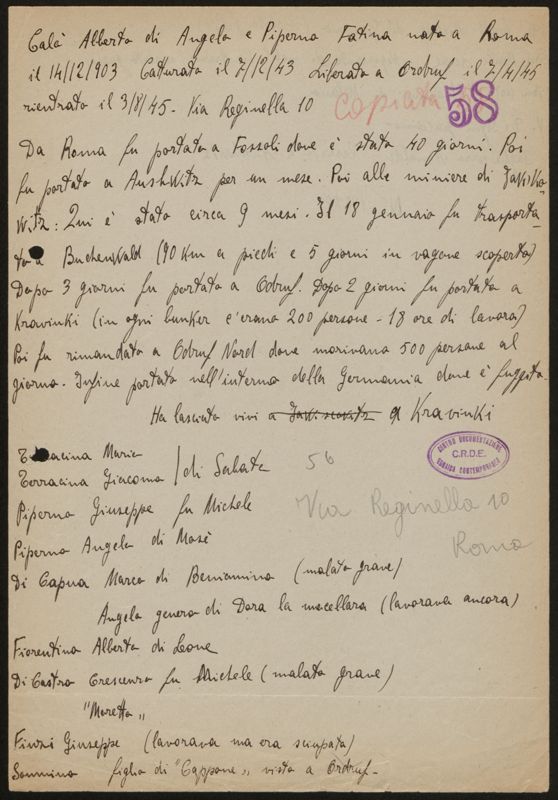 Calò Alberto di Angelo e Piperno Fatina nato a Roma
il 14/12/903 Catturato il 7/12/43 Liberato a Ordruf il 7/4/45
rientrato il 3/8/45 - Via Reginella 10
copiata 58
Da Roma fu portato a Fossoli dove è stato 40 giorni. Poi
fu portato a Aushwitz per un mese. Poi alle miniere di
Qui è stato circa 9 mesi. Il 18 gennaio fu trasporta-
to a Buchenwald (90 Km a piedi e 5 giorni in vagone scoperto)
Dopo 3 giorni fu portato a Odruf. Dopo 2 giorni fu portato a
Kravinki (in ogni bunker c'erano 200 persone - 18 ore di lavoro)
Poi fu rimandato a Odruf Nord dove morivano 500 persone al
giorno. Infine portato nell'interno della Germania dove è fuggito.
Ha lasciato vivi a Kravinki
Terracina Mario
Terracina Giacomo / di Sabato
56
CENTRO DOCUMENTAZIONE
C.R.D.E.
EBRAICA CONTEMPORANEA
Piperno Giuseppe fu Michele
Via Reginella 10
Roma
Piperno Angelo di Mosè
Di Capua Marco di Beniamino (malato grave)
Angelo genero di Dora la macellara (lavorava ancora)
Fiorentino Alberto di Leone
Di Castro Crescenzo fu Michele (malato grave)
"Moretto"
Finzi Giuseppe (lavorava ma era sciupato)
Sonnino figlio di "Cappone" visto a Ordruf -